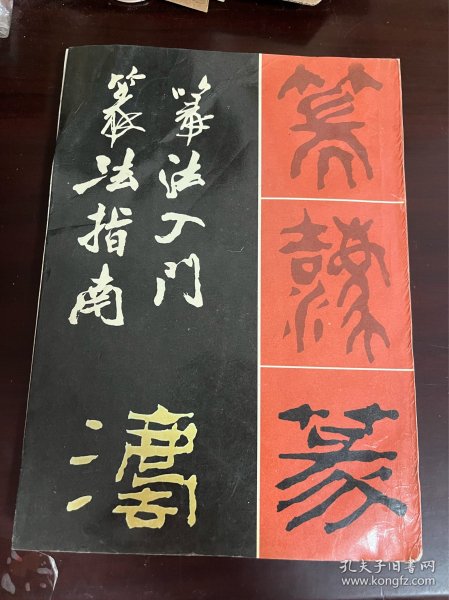 篆法入門
篆法指南
篆
篆
灋
孔夫子旧书网
www.kongfz.com